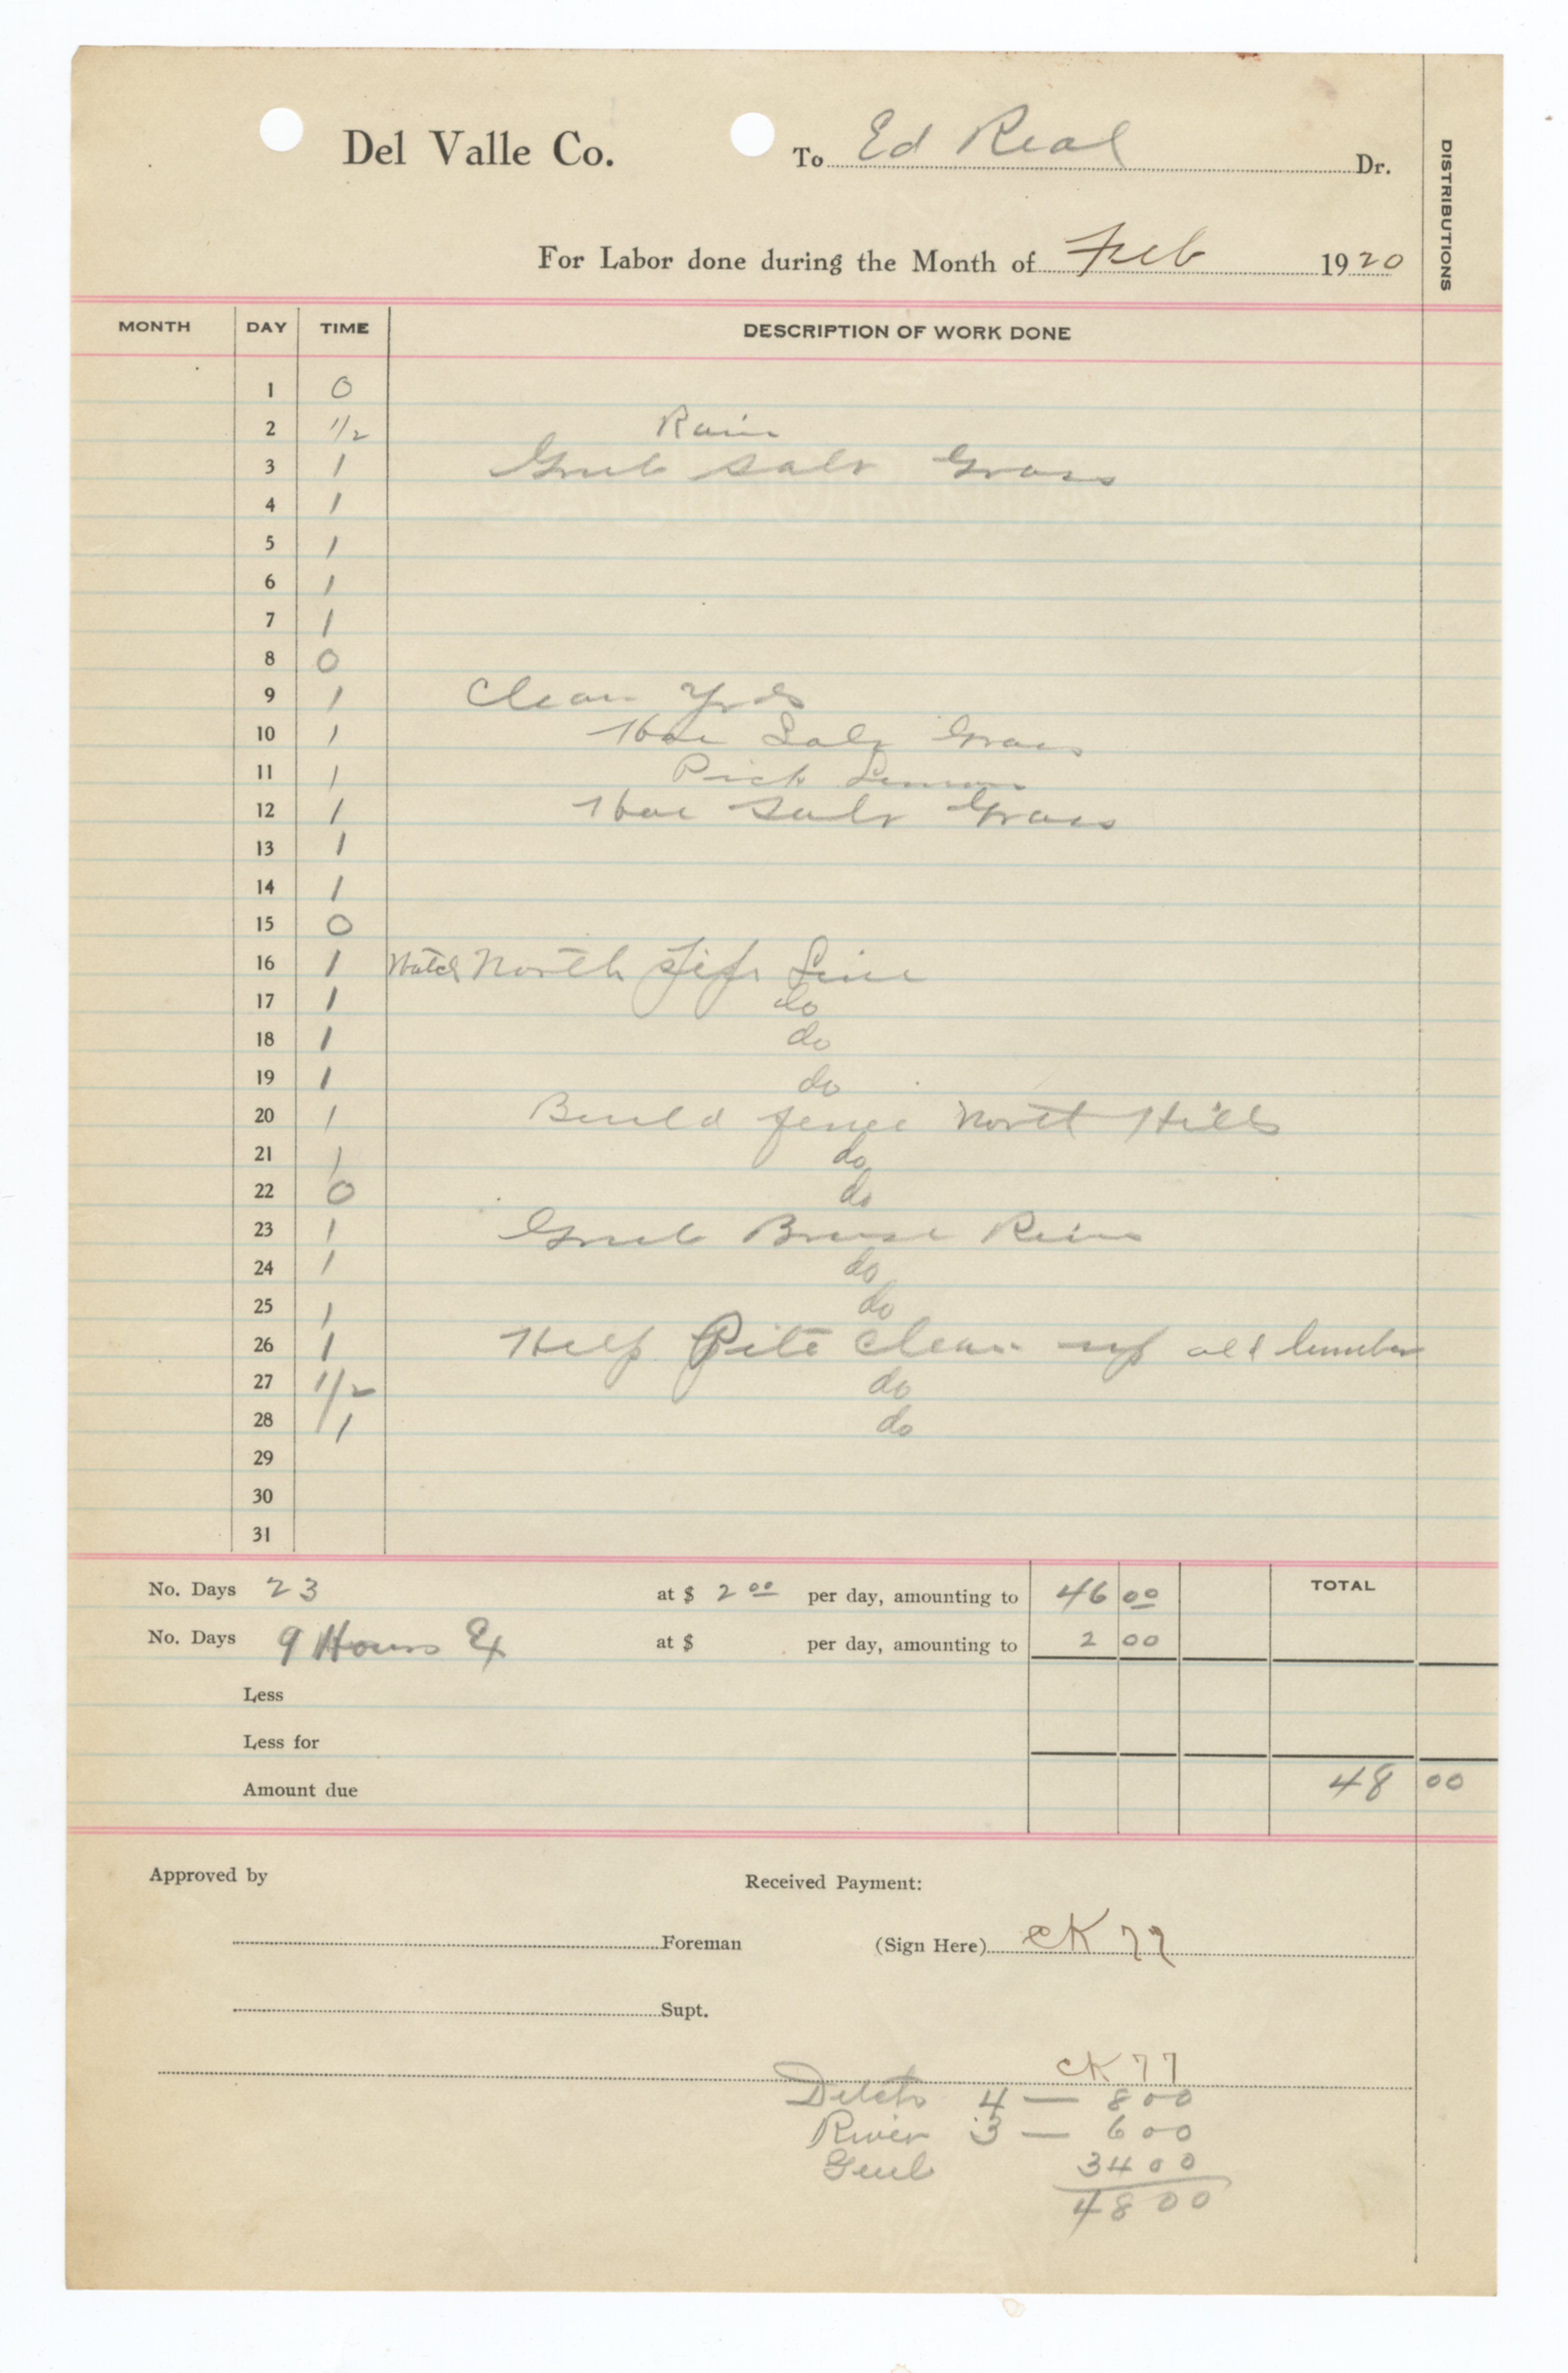 Del Valle Co. To Ed Real Dr.
DISTRIBUTIONS
For Labor done during the Month of Feb 1920
MONTH DAY TIME DESCRIPTION OF WORK DONE
1 0
2 1/2 Rain
3 1 Grub Salt Grass
4 1
5 1
6 1
7 1
8 0
9 1 Clean Yrds
10 1 Hoe Salt Grass
11 1 Pick Lemons
12 1 Hoe Salt Grass
13 1
14 1
15 0
16 1 Watch North Line
17 1 do
18 1 do
19 1 do
20 1 Build fence North Hills
21 1 do
22 0 do
23 1 Grub River
24 1 do
25 1 do
26 1 Help Pite Clean up old lumber
27 1/2 do
28 1 do
29
30
31
No. Days 23 at $ 2 00 per day, amounting to 46 00 TOTAL
No. Days 9 Hours Ex at $ per day, amounting to 2 00
Less
Less for
Amount due 48 00
Approved by Received Payment:
Foreman (Sign Here) CK 77
Supt.
CK 77
4 — 8 00
River 3 — 6 00
34 00
48 00